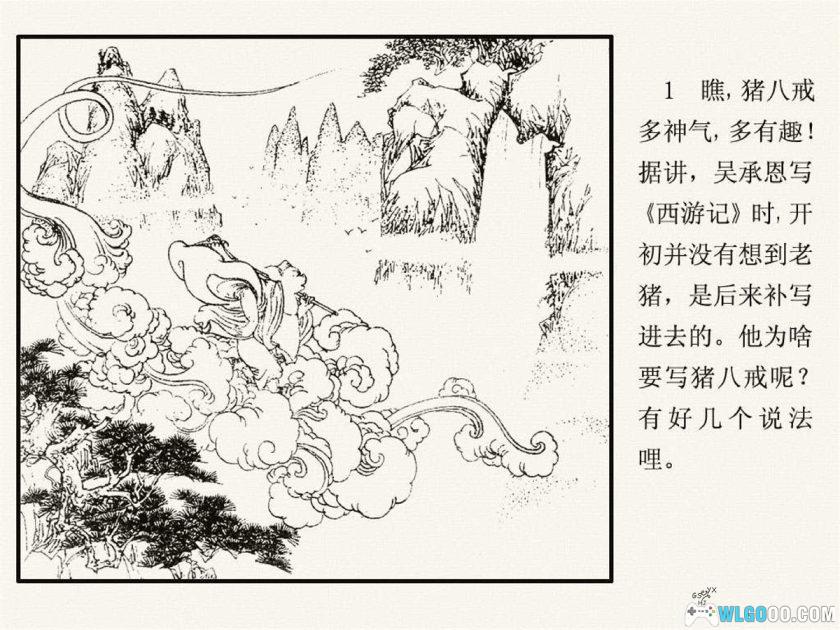 1 瞧,猪八戒
多神气,多有趣!
据讲,吴承恩写
《西游记》时,开
初并没有想到老
猪,是后来补写
进去的。他为啥
要写猪八戒呢?
有好几个说法
哩。
WLGOOO.COM